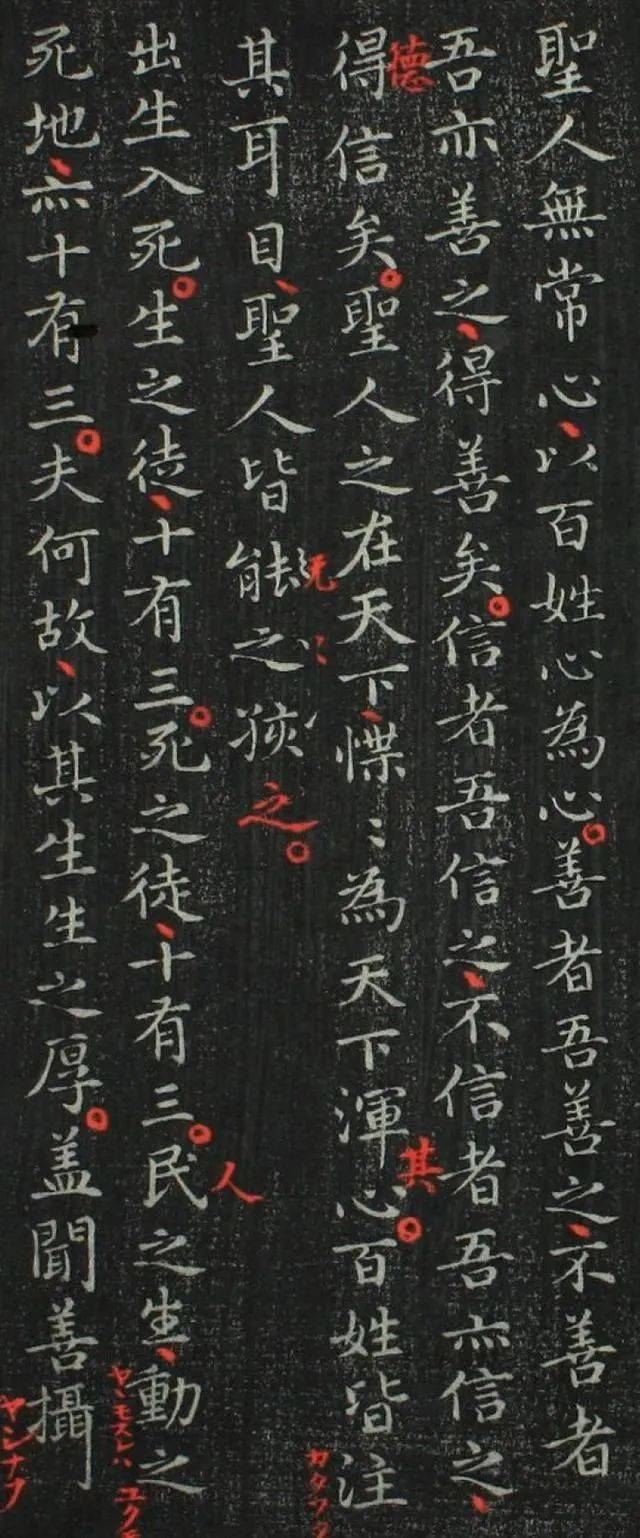 聖人無常心、以百姓心為心。善者吾善之、不善者
吾亦善之、得善矣。信者吾信之、不信者吾亦信之、
德
得信矣。聖人之在天下、惵〻為天下渾心。百姓皆注
其
其耳目、聖人皆能之孩
之。
出生入死。生之徒、十有三。死之徒、十有三。民之生、動之
人
死地、亦十有三。夫何故、以其生生之厚。盖聞善攝
ヤシナフ